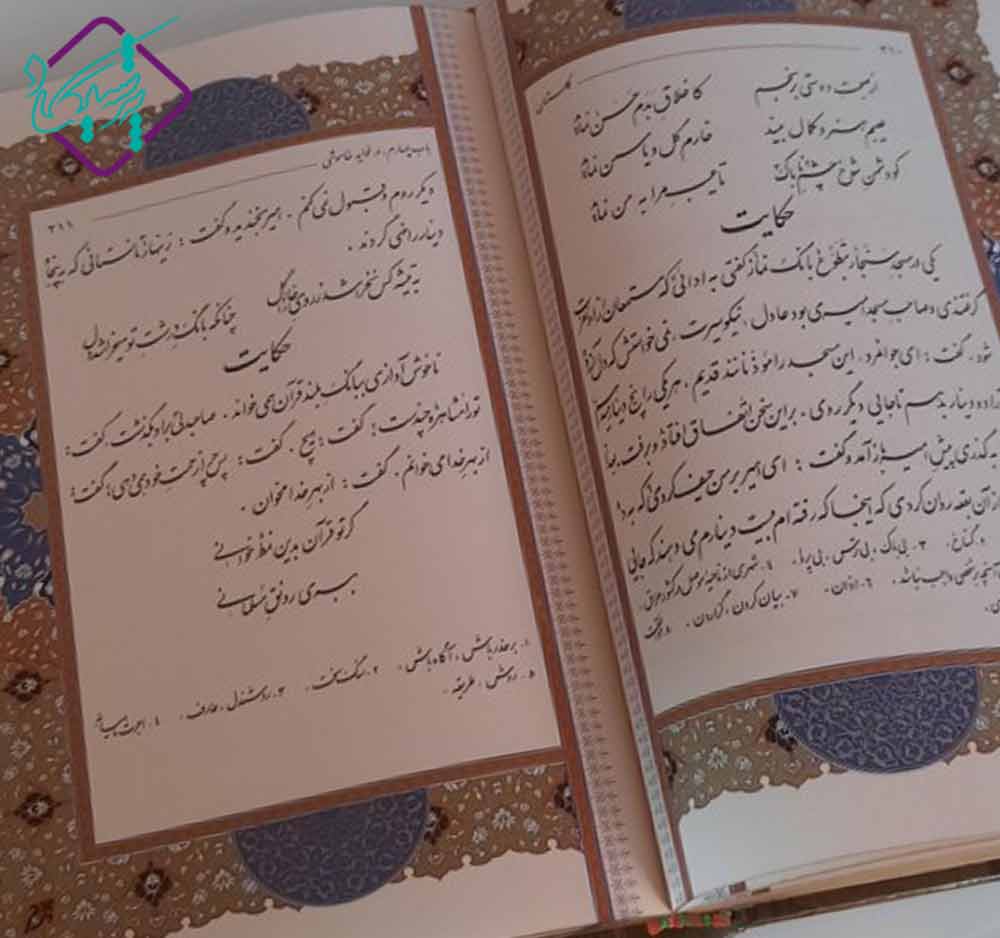 ۲۱۰ گلستان
از صحبت دوستی برنجم کاخلاق بدم حسن نماید
عیبم هنر و کمال بیند خارم گل و یاسمن نماید
کو دشمن شوخ چشم ناباک تا عیب مرا به من نماید
حکایت
یکی در مسجد سنجار بتطوع بانگ نماز گفتی به ادائی که مستمعان را از او نفرت
گرفتندی و صاحب مسجد امیری بود عادل، نیکو سیرت، نمی خواستش که دل آزرده
شود. گفت: ای جوانمرد، این مسجد را مؤذنانند قدیم، هر یکی را پنج دینار مرسوم
ده دینار بدهم تا جایی دیگر روی. بر این سخن اتفاق افتاد و برفت. بعد
به گذری پیش امیر باز آمد و گفت: ای امیر بر من حیف کردی که به ده
از آن بقعه روان کردی که اینجا که رفته ام بیست دینارم می دهند که جایی
گستاخ. ۳- بی باک، بی ترس، بی پروا. ٤- شهری از ناحیه موصل در کشور عراق.
واجب نباشد. ٦- اذان. ۷- بیان کردن، گزاردن. ۸-
باب چهارم، در فواید خاموشی ۲۱۱
دیگر روم و قبول نمی کنم. امیر بخندید و گفت: زینهار تا نستانی که به پنجاه
دینار راضی گردند.
به تیشه کس نخراشد ز روی خارا گل چنانکه بانگ درشت تو میخراشد دل
حکایت
ناخوش آوازی به بانگ بلند قرآن همی خواند. صاحبدلی بر او بگذشت گفت:
تو را مشاهره چندست؟ گفت: هیچ. گفت: پس چرا زحمت خود همی دهی؟ گفت:
از بهر خدا می خوانم. گفت: از بهر خدا مخوان.
گر تو قرآن بدین نمط خوانی
ببری رونق مسلمانی
۱- بر حذر باش، آگاه باش. ۲- سنگ سخت. ۳- روشندل، عارف. ٤- اجرت ماهیانه
۵- روش، طریقه.